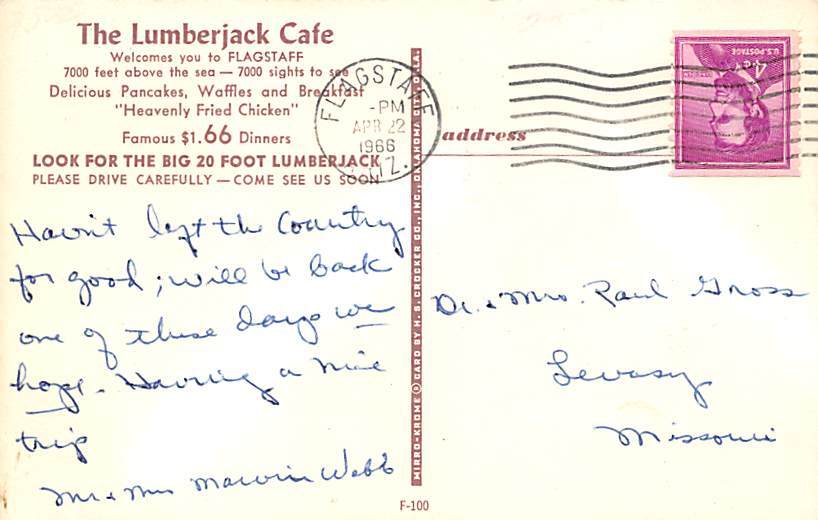 The Lumberjack Cafe
Welcomes you to FLAGSTAFF
7000 feet above the sea — 7000 sights to see
Delicious Pancakes, Waffles and Breakfast
"Heavenly Fried Chicken"
Famous $1.66 Dinners
LOOK FOR THE BIG 20 FOOT LUMBERJACK
PLEASE DRIVE CAREFULLY — COME SEE US SOON
Havn't left the Country
for good; will be back
one of these days we
hope. Having a nice
trip
Mr & Mrs Marvin Webb
MIRRO-KROME ® CARD BY H. S. CROCKER CO., INC., OKLAHOMA CITY, OKLA.
F-100
FLAGSTAFF
-PM
APR 22
1966
ARIZ.
address
4¢
U.S. POSTAGE
Dr. & Mrs. Paul Gross
Levasy
Missouri